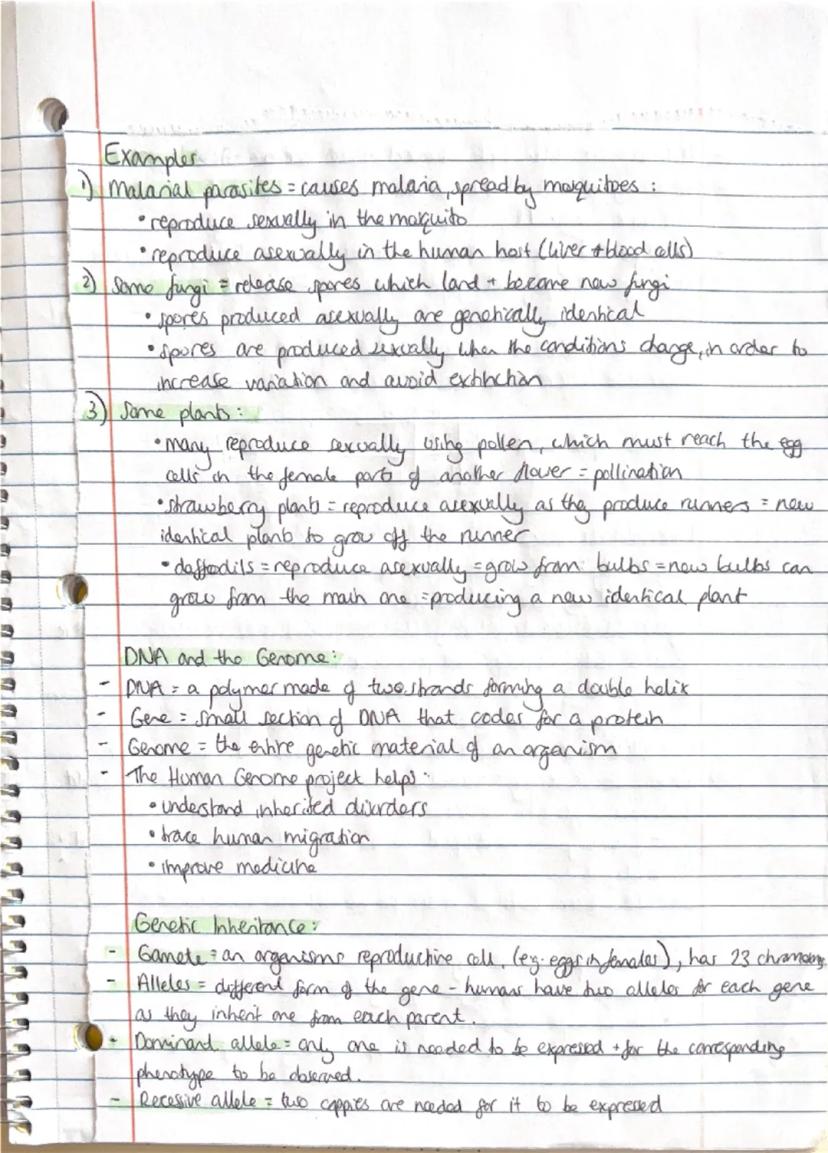 Examples
1) Malarial parasites = causes malaria, spread by mosquitoes :
• reproduce sexually in the mosquito
• reproduce asexually in the human host (liver + blood cells)
2) Some fungi = release spores which land + become new fungi
• spores produced asexually are genetically identical
• spores are produced sexually when the conditions change, in order to
increase variation and avoid extinction
3) Some plants :
• many reproduce sexually using pollen, which must reach the egg
cells in the female parts of another flower = pollination
• strawberry plants = reproduce asexually as they produce runners = new
identical plants to grow off the runner
• daffodils = reproduce asexually = grow from bulbs = new bulbs can
grow from the main one = producing a new identical plant
DNA and the Genome :
- DNA = a polymer made of two strands forming a double helix
- Gene = small section of DNA that codes for a protein
- Genome = the entire genetic material of an organism
- The Human Genome project helps :
• understand inherited disorders
• trace human migration
• improve medicine
Genetic Inheritance :
- Gamete = an organisms reproductive cell, (eg. eggs in females), has 23
- Alleles = different form of the gene - humans have two alleles for each gene
as they inherit one from each parent.
- Dominant allele = only one is needed to be expressed + for the corresponding
phenotype to be observed.
- Recesive allele = two coppies are needed for it to be expressed